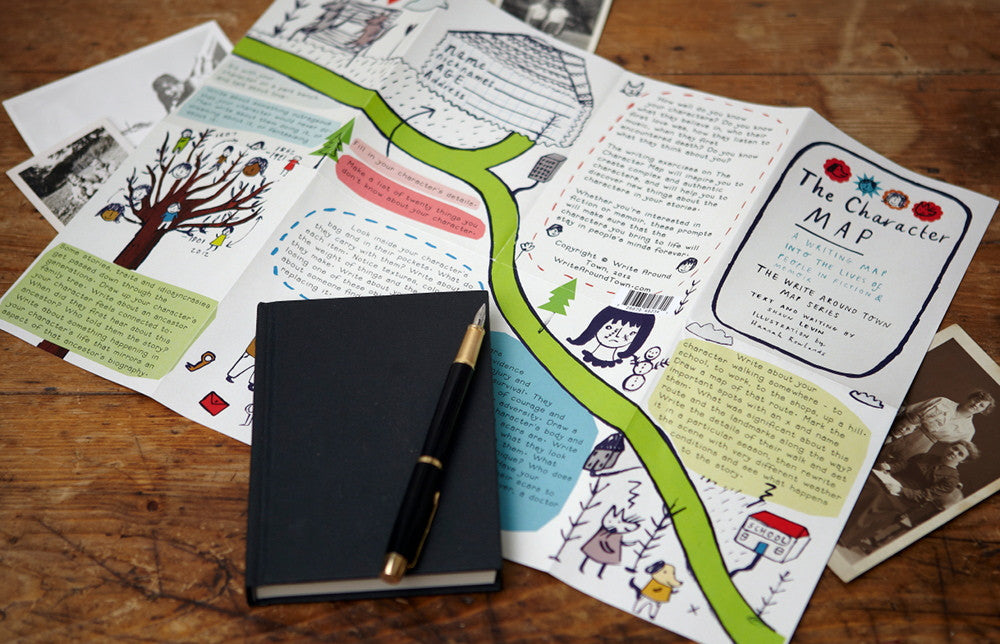 name
NICKNAMES
AGE
Address
How well do you know
your characters? Do you know
what they believe in, who they listen to
first kiss was, how they first
encounter with death? Do you know
what they think about you?
The writing exercises on The
Character Map will inspire you to
create complex and authentic
characters, and will help you to
discover new things about the
characters in your stories.
Whether you're interested in
fiction or memoir, these prompts
will make sure that the
character you bring to life will
stay in people's minds forever.
Copyright © Write Around
Town 2012
WriteAroundTown.com
The Character
MAP
A WRITING MAP
INTO THE LIVES OF
PEOPLE IN FICTION &
MEMOIR
THE WRITE AROUND TOWN
MAP SERIES
TEXT AND WRITING BY
SHAUN LEVIN
ILLUSTRATION by
Hannah Rowlands
Write about something outrageous
Fill in your character's details.
Make a list of twenty things you
don't know about your character.
1901
2012
Some stories, traits and idiosyncrasies
get passed down through the
generations. Draw your character's
family tree. Write about an ancestor
When did they first hear about this
ancestor? Who told them the story?
Write about something happening in
your character's life that mirrors an
aspect of this ancestor's biography.
Look inside your character's
bag and in their pockets. What do
they carry with them? Write about
each item. Notice texture, color,
the weight of things, the
they make. Write about
losing one of these
about someone
replacing it.
evidence
injury and
survival. They
of courage and
adversity. Draw a
character's body and
scars are. Write
what they look
them. What
Who does
have your
their scars to
a doctor
Write about your
character walking somewhere - to
school, to work, to the shops, up a hill.
Draw a map of that route. Mark the
important spots with an x and name
them. What was significant about this
route and the landmarks along the way?
Write the details of their walk and set
it in a particular season, then rewrite
it with very different weather
conditions and see what happens
to the story.
SCHOOL